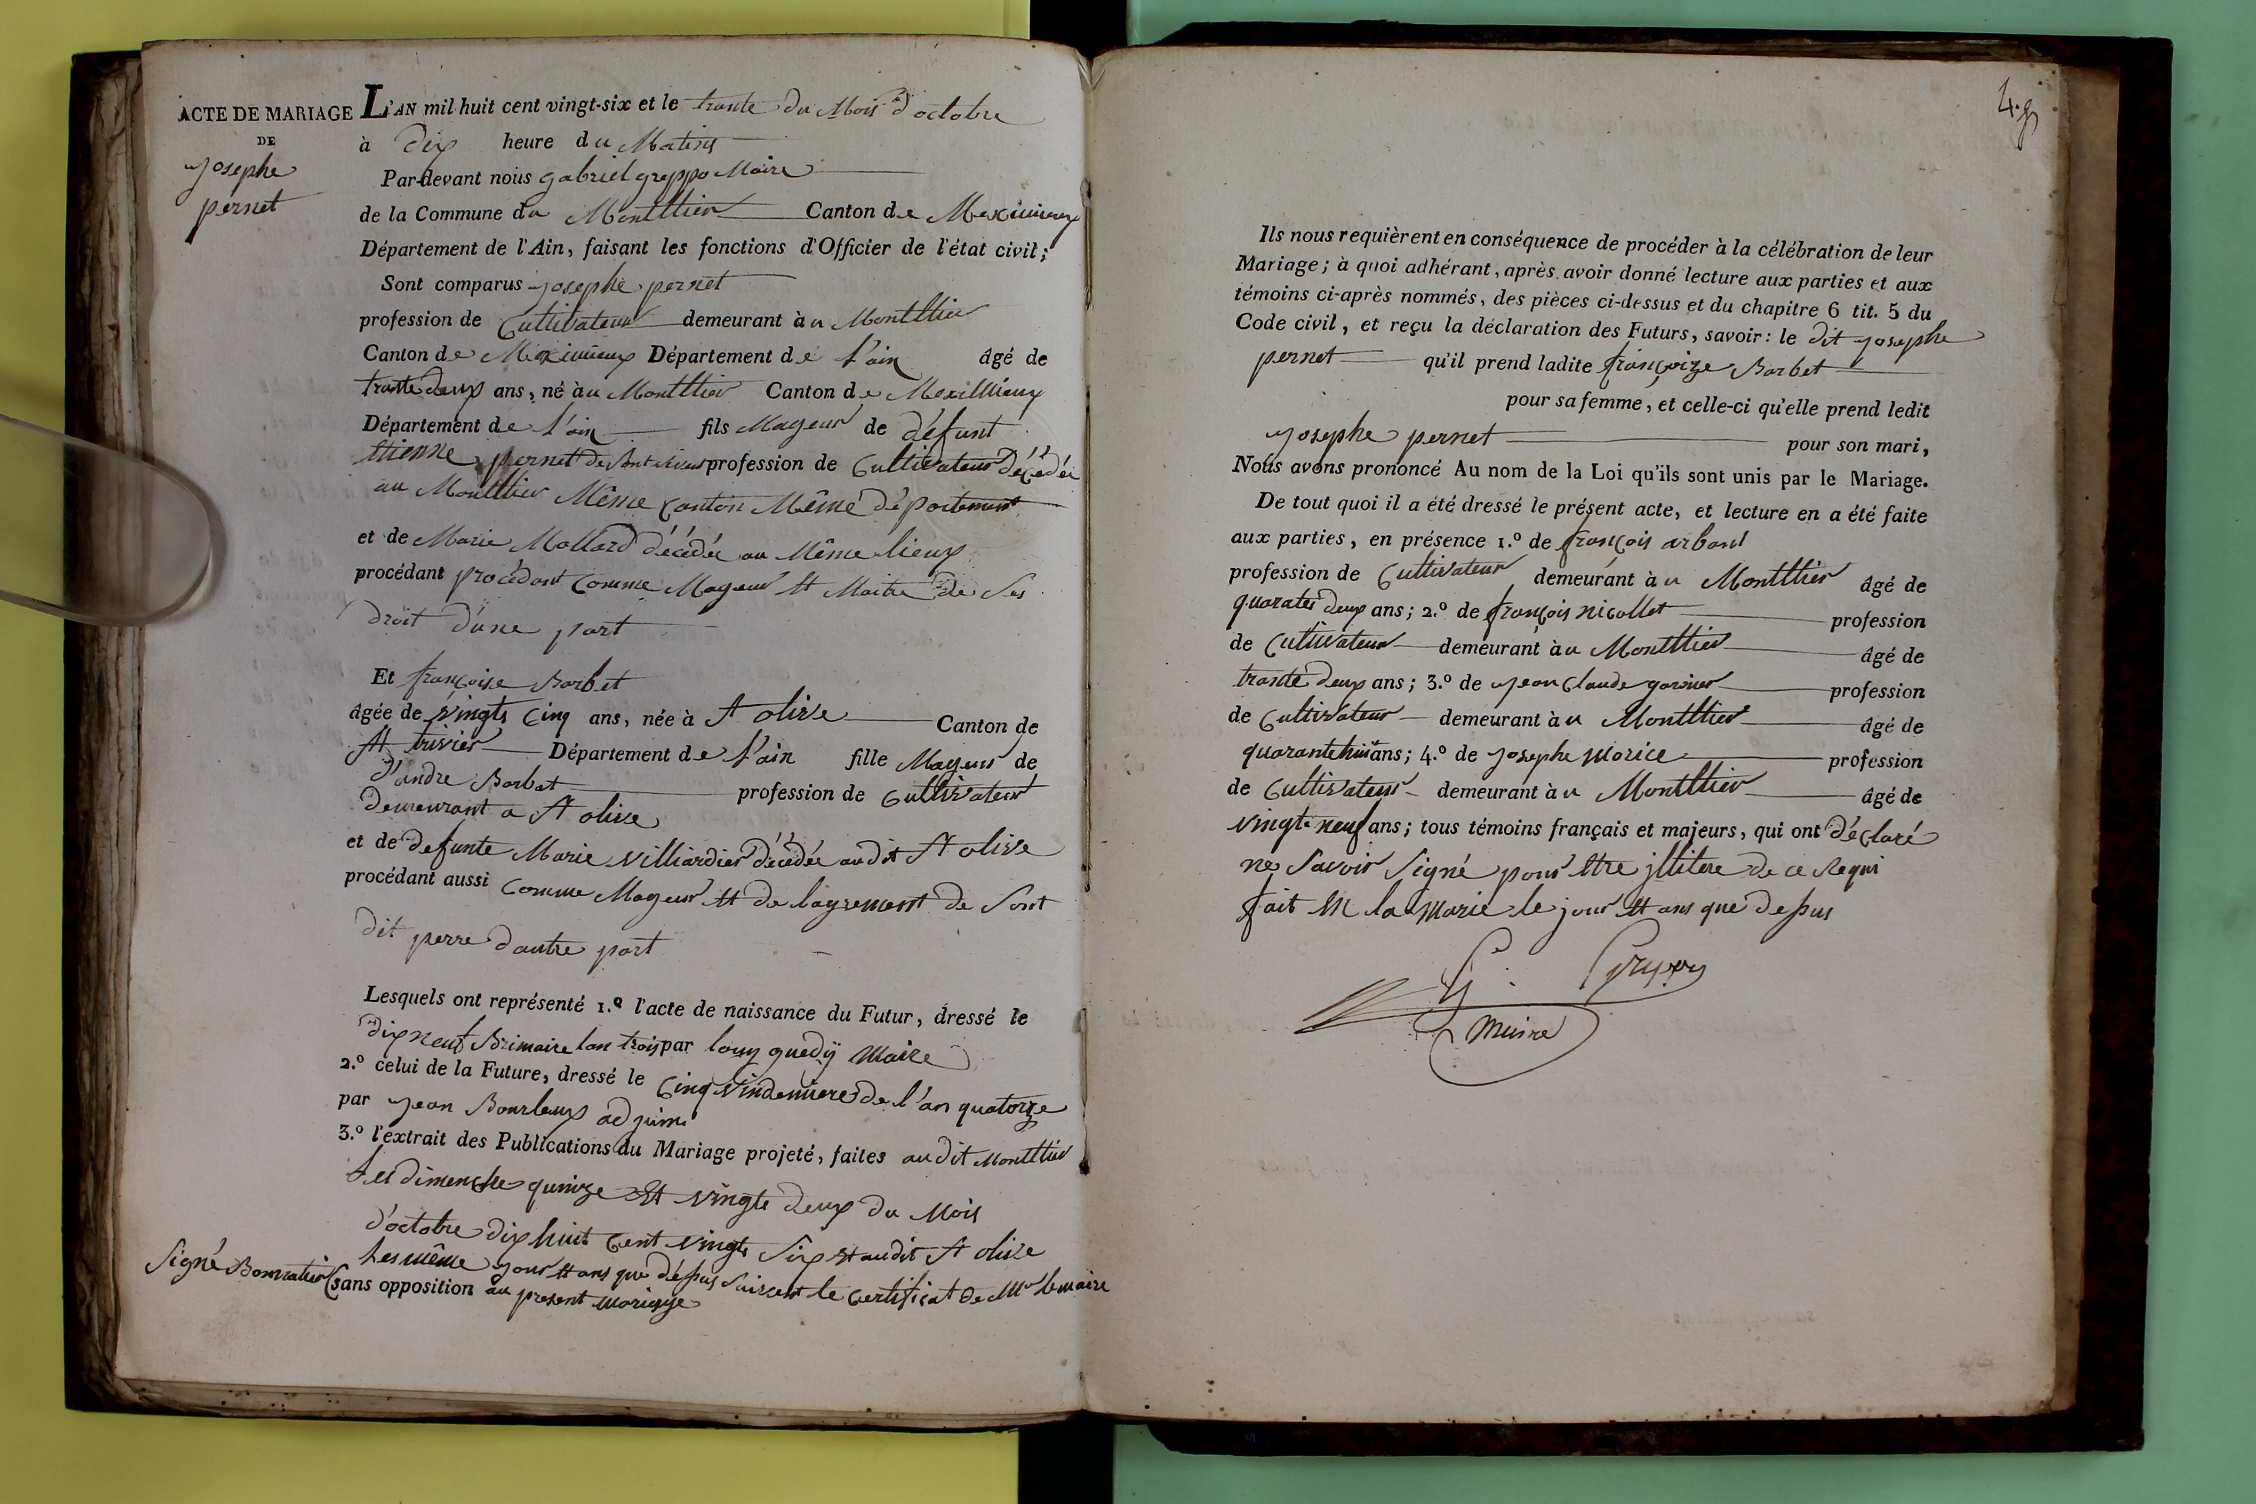 ACTE DE MARIAGE
DE
Josephe
pernet
L'AN mil huit cent vingt-six et le trante du Mois d'octobre
à Dix heure du Matins
Par-devant nous gabriel greppo Maire
de la Commune du Montllier Canton de Meximieux
Département de l'Ain, faisant les fonctions d'Officier de l'état civil;
Sont comparus Josephe pernet
profession de Cultivateur demeurant àu Montllier
Canton de Meximieux Département de l'ain âgé de
trante deux ans, né àu Montllier Canton de Mexillieux
Département de l'ain fils Mageur de défunt
Etienne pernet profession de Cultivateur décédée
au Montllier Même Canton Même département
et de Marie Mollard décédée au Même lieux
procédant procédant comme Mageur Et Maitre de Ses
droit d'une part
Et françoise Borbet
âgée de vingts Cinq ans, née à St olive Canton de
St trivier Département de l'ain fille Mageur de
D'andre Borbat profession de Cultivateur
Demeurant a St olive
et de defunte Marie villiardier décédée audit St olive
procédant aussi comme Mageur Et de lagrement de Sont
dit perre dautre part
Lesquels ont représenté 1.º l'acte de naissance du Futur, dressé le
dix neuf Brimaire lan trois par louy guedy Maire
2.º celui de la Future, dressé le Cinq Vindemiere de l'an quatorze
par Jean Bourleux adjoint
3.º l'extrait des Publications du Mariage projeté, faites audit Montllier
Les dimenche quinze Et vingte deux du Mois
d'octobre dix huit Cent vingts Six Et audit St olive
Les même jour Et ans que dessus Suivent le Certificat de Mr le maire
Signé Bonnatier (sans opposition au present Mariage
4.9
Ils nous requièrent en conséquence de procéder à la célébration de leur
Mariage; à quoi adhérant, après avoir donné lecture aux parties et aux
témoins ci-après nommés, des pièces ci-dessus et du chapitre 6 tit. 5 du
Code civil, et reçu la déclaration des Futurs, savoir: le dit Josephe
pernet qu'il prend ladite françoize Borbet
pour sa femme, et celle-ci qu'elle prend ledit
Josephe pernet pour son mari,
Nous avons prononcé Au nom de la Loi qu'ils sont unis par le Mariage.
De tout quoi il a été dressé le présent acte, et lecture en a été faite
aux parties, en présence 1.º de françois arbant
profession de Cultivateur demeurant àu Montllier âgé de
quarates deux ans; 2.º de françois nicollet profession
de Cultivateur demeurant àu Montllier âgé de
trante deux ans; 3.º de Jean Claude garnier profession
de Cultivateur demeurant àu Montllier âgé de
quarantehuit ans; 4.º de Josephe Morice profession
de Cultivateur demeurant àu Montllier âgé de
vingte neuf ans; tous témoins français et majeurs, qui ont déclaré
ne Savoir Signé pour Etre jllitere de ce Requi
fait En la Marie le jour Et ans que dessus
G. Greppo
Maire